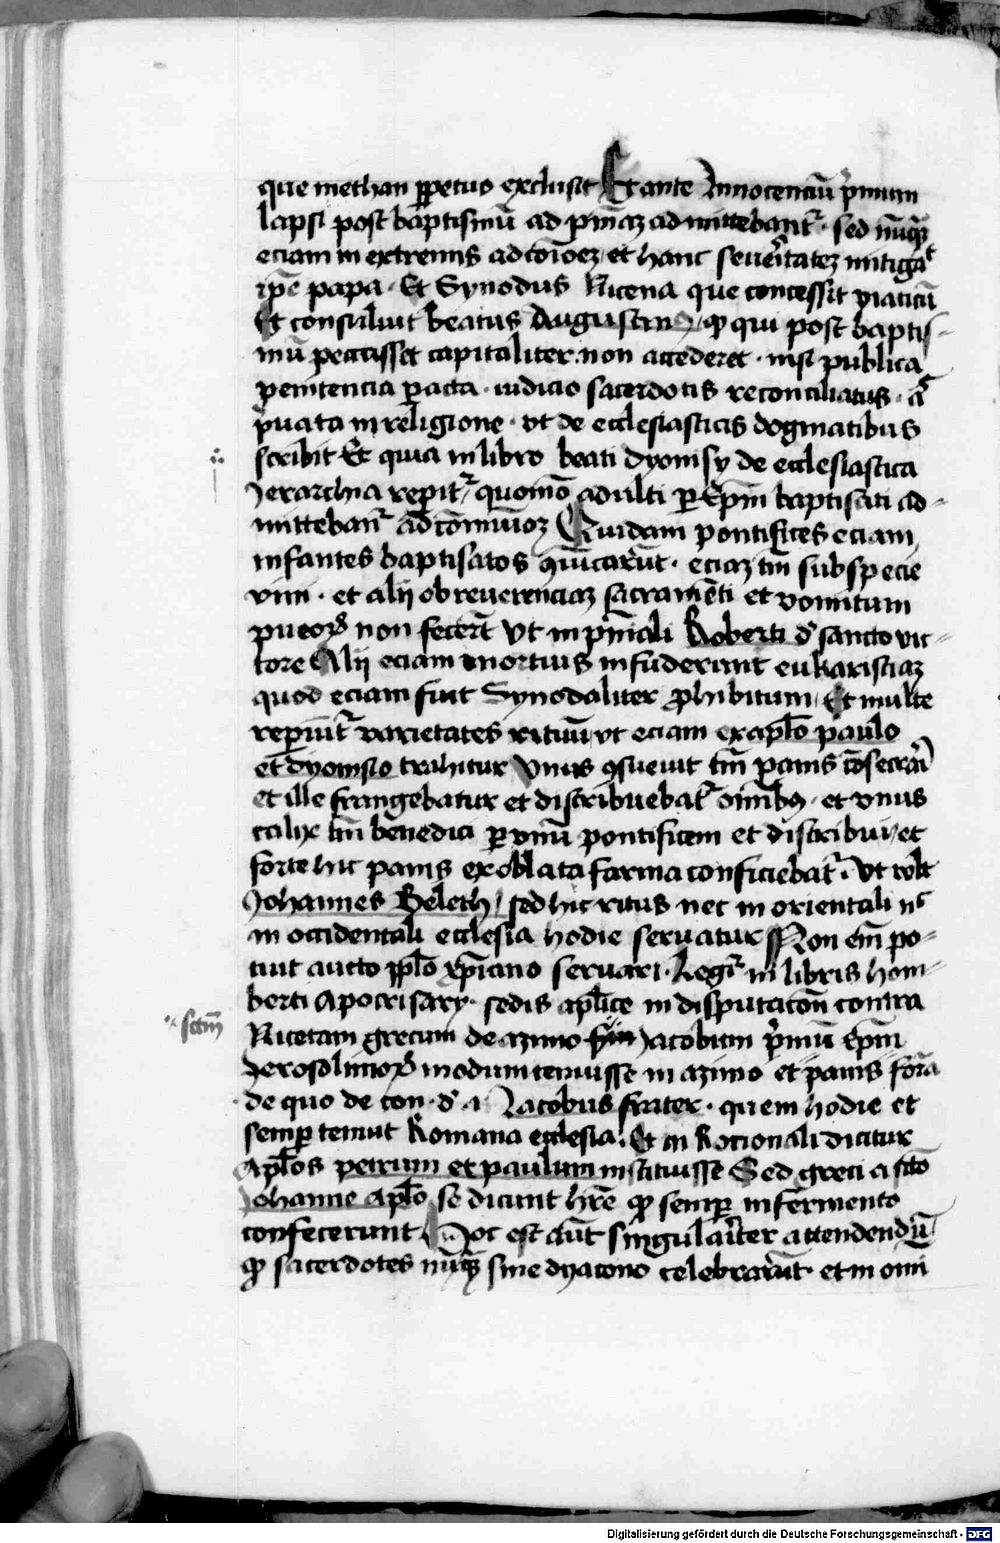 que methan ꝑpetuo exclusit Et ante Innocenciū p̄mum
lapsi post baptismū ad pn̄iaꝫ admittebant᷑ · sed nūꝙ
eciam in extremis ad cōioeꝫ et hanc seueritateꝫ mitigat
ip̄e papa · Et Synodus Nicena que concessit viaticū
Et consuluit beatus Augustinꝰ ꝙ qui post baptis-
mū peccasset capitaliter non accederet · nisi publica
penitencia ꝑacta · iudicio sacerdotis reconciliatus ·
p̄uata in religione · vt de ecclesiasticis dogmatibus
scribit Et quia in libro beati dyonisy de ecclesiastica
Jerarchia reperit᷑ quomō adulti ꝑ Ep̄m baptisati ad-
mittebant᷑ ad cōmunioꝫ Quidam pontifices eciam
infantes baptisatos ꝯicarūt · eciaꝫ tm̄ sub specie
vini · et alij ob reuerenciaꝫ sacramēti et vomitum
pueoꝝ non fecerūt Vt in pn̄iali Roberti d' sancto vic-
tore Alij eciam mortuis infuderunt eukaristiaꝫ
quod eciam fuit Synodaliter ꝓhibitum Et multe
reperiūt᷑ varietates rituū vt eciam ex apl̄o paulo
et dyonisio trahitur Vnus ꝯsueuit tm̄ panis cōsecrari
et ille frangebatur et distribuebat᷑ omībꝫ · et vnus
calix tm̄ benedici ꝑ vnū pontificem et distribui et
forte hic panis ex oblata farina conficiebat᷑ · Vt vult
Johannes Beleth / sed hic ritus nec in orientali nec
in occidentali ecclesia hodie seruatur Non em̄ po-
tuit aucto ppl̄o xp̄iano seruari · Legit᷑ in libris hom-
berti Apocrisary · sedis apl̄ice in disputacōn contra
Nicetam grecum de azimo Jacobum p̄mū Ep̄m
sctm̄
Jerosolimoꝝ modum tenuisse in azimo et panis forā
de quo de con · d' · 1 · Jacobus frater · quem hodie et
semꝑ tenuit Romana ecclesia · Et in Rocionali dicitur
Apl̄os petrum et paulum instituisse Sed greci a scō
Johanne apl̄o se dicunt hr̄e ꝙ semꝑ in fermento
confecerunt Hoc est aūt singulariter attendendū
ꝙ sacerdotes nūꝙ sine dyacono celebrarūt · et in omi